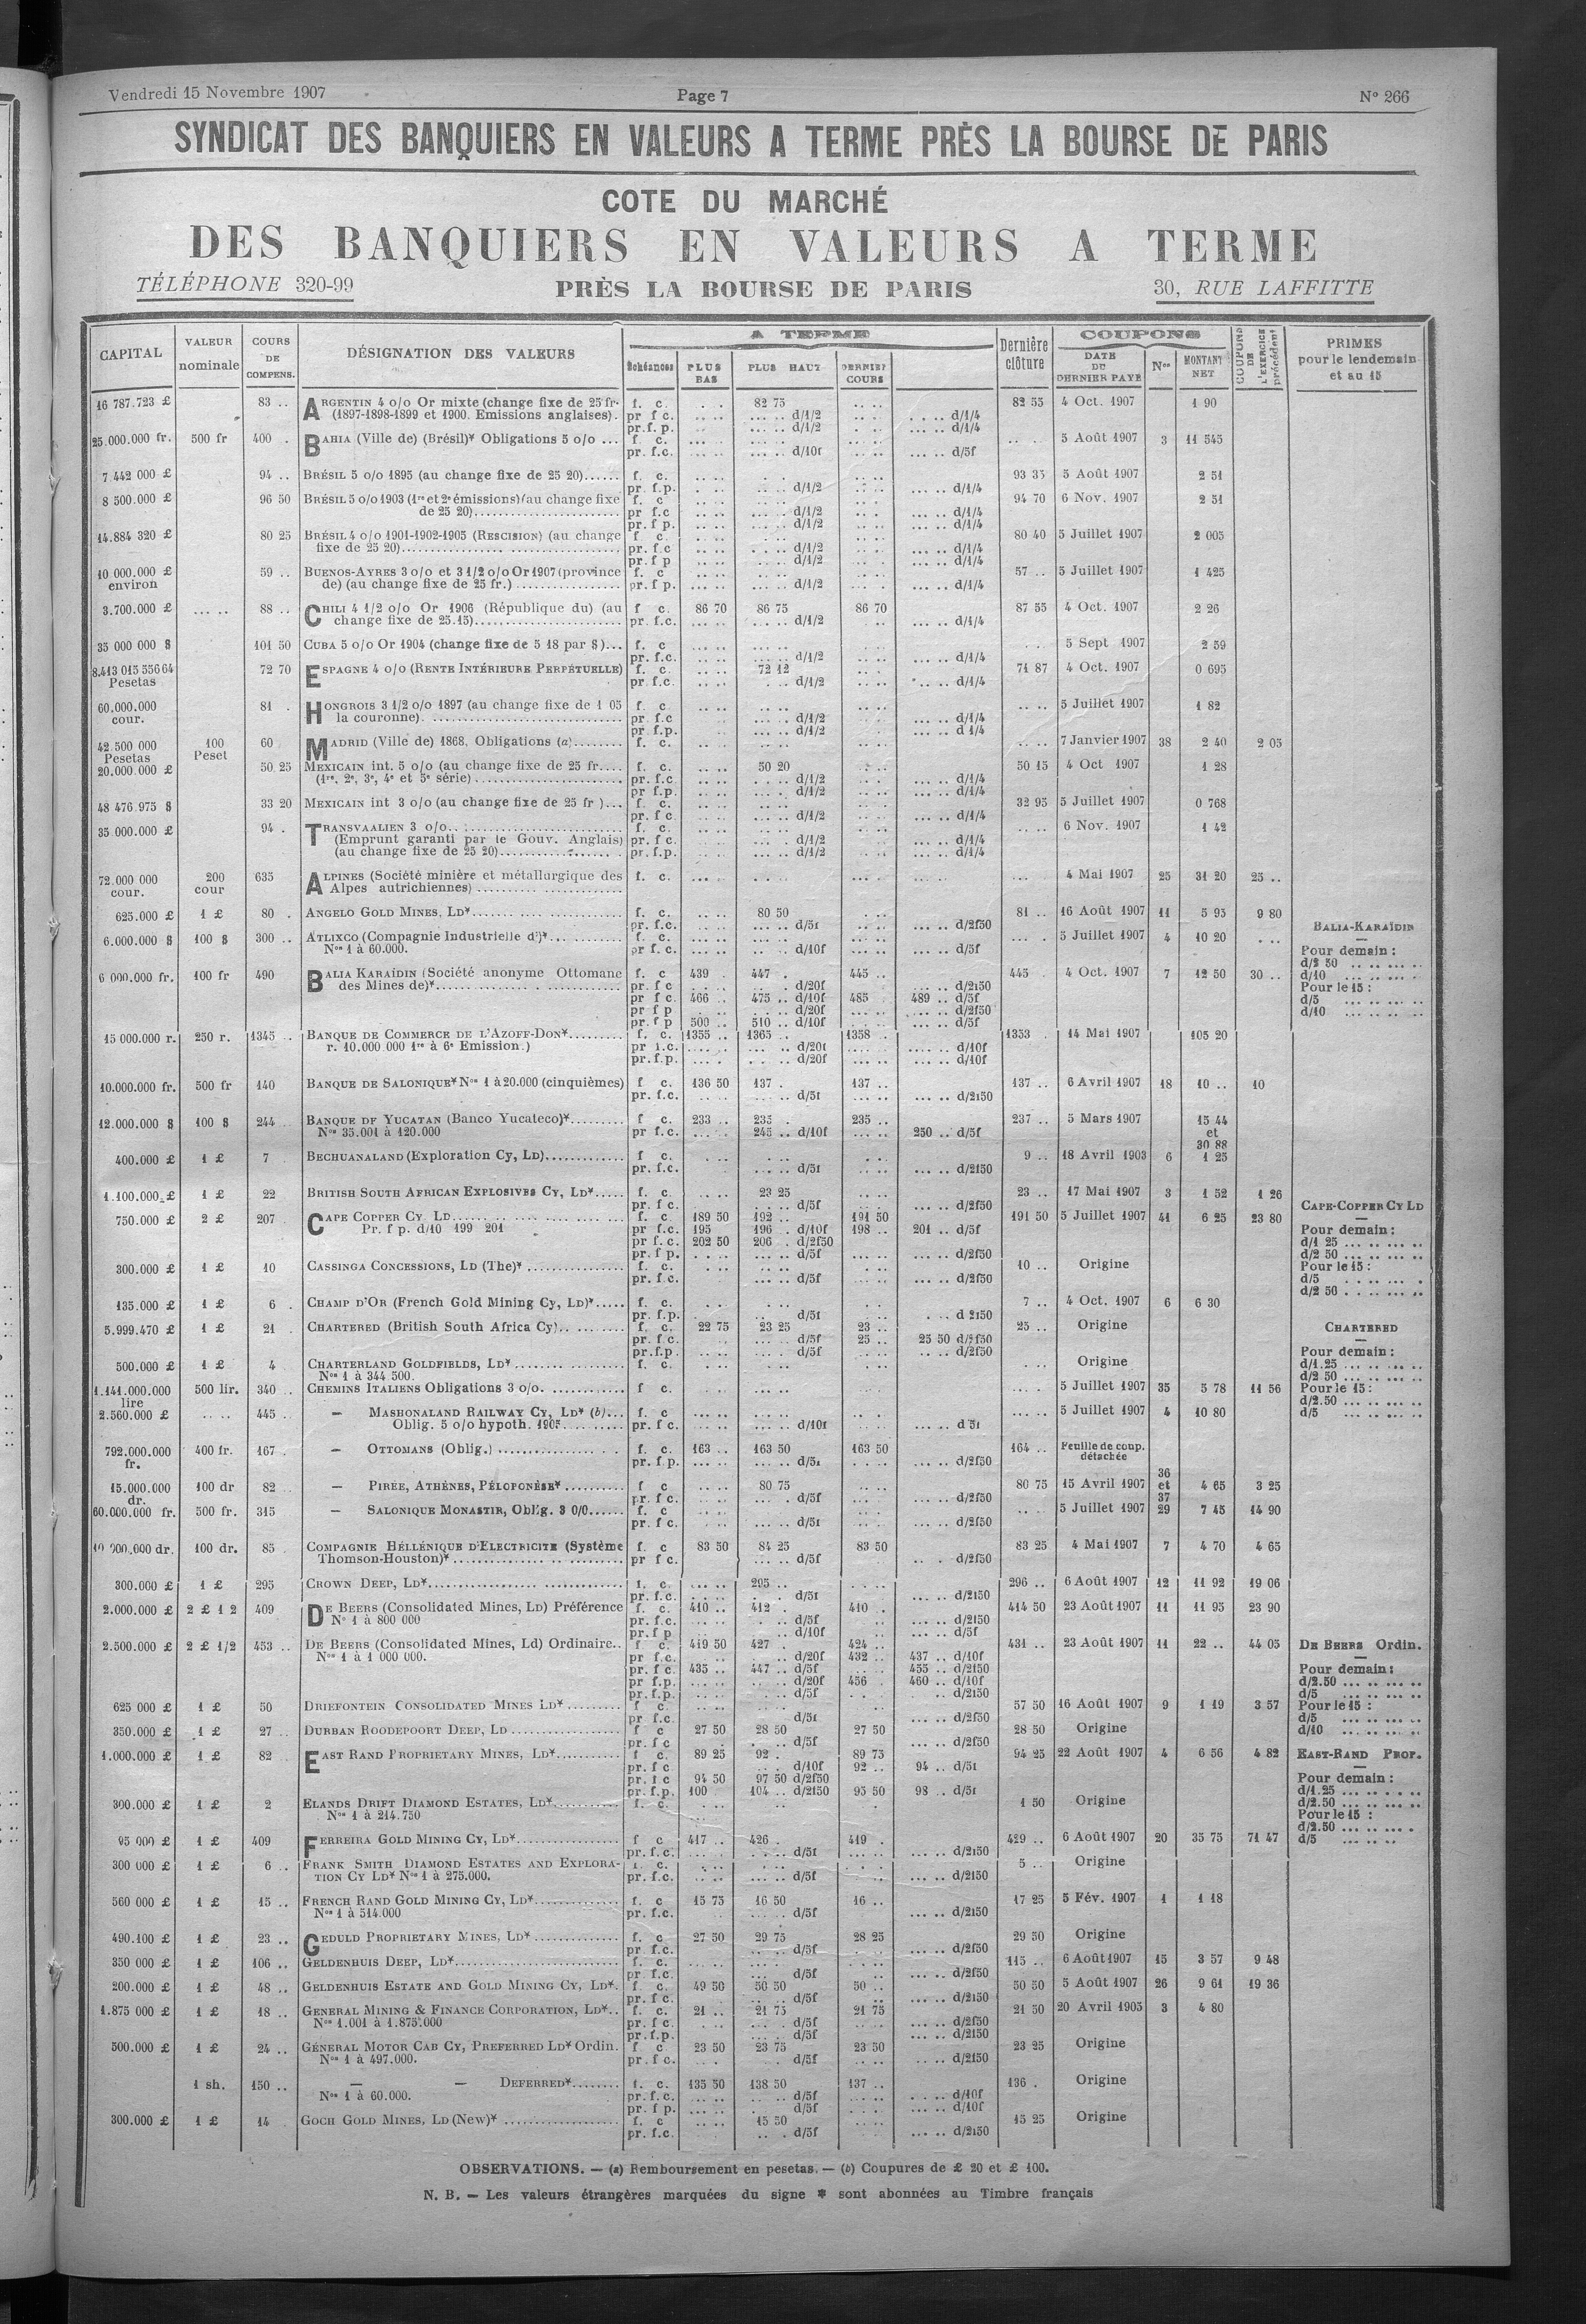 Vendredi 15 Novembre 1907 Page 7 N° 266
SYNDICAT DES BANQUIERS EN VALEURS A TERME PRÈS LA BOURSE DE PARIS
COTE DU MARCHÉ
DES BANQUIERS EN VALEURS A TERME
TÉLÉPHONE 320-99 PRÈS LA BOURSE DE PARIS 30, RUE LAFFITTE
CAPITAL VALEUR nominale COURS DE COMPENS. DÉSIGNATION DES VALEURS A TERME Échéances PLUS BAS PLUS HAUT DERNIER COURS Dernière clôture COUPONS DATE DU DERNIER PAYÉ Nos MONTANT NET COUPONS DE L'EXERCICE précédent PRIMES pour le lendemain et au 15
16 787.723 £ 83 .. ARGENTIN 4 o/o Or mixte (change fixe de 25 fr. f. c. 82 75 82 55 4 Oct. 1907 1 90
(1897-1898-1899 et 1900. Emissions anglaises). pr f c. d/1/2 d/1/4
pr.f. p. d/1/2 d/1/4
25.000.000 fr. 500 fr 400 . BAHIA (Ville de) (Brésil)* Obligations 5 o/o ... f. c. 5 Août 1907 3 11 545
pr. f.c. d/10f d/5f
7 442 000 £ 94 .. BRÉSIL 5 o/o 1895 (au change fixe de 25 20)...... f. c. 93 35 5 Août 1907 2 51
pr. f.p. d/1/2 d/1/4
8 500.000 £ 96 50 BRÉSIL 5 o/o 1903 (1re et 2e émissions) (au change fixe f. c 94 70 6 Nov. 1907 2 51
de 25 20)........ pr f.c d/1/2 d/1/4
pr. f p. d/1/2 d/1/4
14.884 320 £ 80 25 BRÉSIL 4 o/o 1901-1902-1905 (RESCISION) (au change f. c. 80 40 5 Juillet 1907 2 005
fixe de 25 20)........ pr. f.c d/1/2 d/1/4
pr. f p d/1/2 d/1/4
10 000.000 £ 59 .. BUENOS-AYRES 3 o/o et 3 1/2 o/o Or 1907 (province f. c 57 .. 5 Juillet 1907 1 425
environ de) (au change fixe de 25 fr.) ........ pr. f p. d/1/2 d/1/4
3.700.000 £ ... .. 88 .. CHILI 4 1/2 o/o Or 1906 (République du) (au f c. 86 70 86 75 86 70 87 55 4 Oct. 1907 2 26
change fixe de 25.15)........ pr. f.c. d/1/2 d/1/4
35 000 000 $ 101 50 CUBA 5 o/o Or 1904 (change fixe de 5 18 par $)... f. c 5 Sept 1907 2 59
pr. f.c. d/1/2 d/1/4
8.413 015 556 64 72 70 ESPAGNE 4 o/o (RENTE INTÉRIEURE PERPÉTUELLE) f. c. 72 12 71 87 4 Oct. 1907 0 695
Pesetas pr. f.c. d/1/2 d/1/4
60.000.000 81 . HONGROIS 3 1/2 o/o 1897 (au change fixe de 1 05 f. c 5 Juillet 1907 1 82
cour. la couronne). ........ pr. f.c d/1/2 d/1/4
pr f.p. d/1/2 d 1/4
42.500 000 100 60 MADRID (Ville de) 1868. Obligations (a)........ f. c. 7 Janvier 1907 38 2 40 2 05
Pesetas Peset
20.000.000 £ 50 25 MEXICAIN int. 5 o/o (au change fixe de 25 fr.... f. c. 50 20 50 15 4 Oct 1907 1 28
(1re, 2e, 3e, 4e et 5e série) ........ pr. f.c d/1/2 d/1/4
pr. f.p. d/1/2
48 476.975 $ 33 20 MEXICAIN int 3 o/o (au change fixe de 25 fr )... f. c. 32 95 5 Juillet 1907 0 768
pr. f c d/1/2 d/1/4
35.000.000 £ 94 . TRANSVAALIEN 3 o/o........ f. c. 6 Nov. 1907 1 42
(Emprunt garanti par le Gouv. Anglais) pr. f c. d/1/2 d/1/4
(au change fixe de 25 20)........ pr. f.p. d/1/2 d/1/4
72.000 000 200 635 ALPINES (Société minière et métallurgique des f. c. 4 Mai 1907 25 31 20 25 ..
cour. cour Alpes autrichiennes) ........
625.000 £ 1 £ 80 . ANGELO GOLD MINES, LD*........ f. c. 80 50 81 .. 16 Août 1907 11 5 95 9 80
pr. f.c. d/5f d/2f50 BALIA-KARAÏDIN
6.000.000 $ 100 $ 300 .. ATLIXCO (Compagnie Industrielle d')*........ f. c. 5 Juillet 1907 4 10 20
Nos 1 à 60.000. pr f. c. d/10f d/5f Pour demain :
d/2 50
6 000.000 fr. 100 fr 490 BALIA KARAÏDIN (Société anonyme Ottomane f. c 439 . 447 . 445 .. 445 . 4 Oct. 1907 7 12 50 30 .. d/10
des Mines de)*........ pr. f c d/20f d/2f50 Pour le 15 :
pr f c. 466 .. 475 .. d/10f 485 489 .. d/5f d/5
pr f p d/20f d/2f50 d/10
pr. f p 500 .. 510 .. d/10f d/5f
15 000.000 r. 250 r. 1345 .. BANQUE DE COMMERCE DE L'AZOFF-DON*........ f. c. 1355 .. 1365 . 1358 . 1353 . 14 Mai 1907 105 20
r. 10.000 000 1re à 6e Emission.) pr f.c. d/20f d/10f
pr. f.p. d/20f d/10f
10.000.000 fr. 500 fr 140 BANQUE DE SALONIQUE* Nos 1 à 20.000 (cinquièmes) f c. 136 50 137 . 137 .. 137 .. 6 Avril 1907 18 10 .. 10
pr. f.c. d/5f d/2f50
12.000.000 $ 100 $ 244 BANQUE DE YUCATAN (Banco Yucateco)*........ f c. 233 .. 235 . 235 .. 237 .. 5 Mars 1907 15 44
Nos 35.001 à 120.000 pr f.c. 245 .. d/10f 250 .. d/5f et
30 88
400.000 £ 1 £ 7 BECHUANALAND (Exploration Cy, LD)........ f c. 9 .. 18 Avril 1903 6 1 25
pr. f.c. d/5f d/2f50
1.100.000 £ 1 £ 22 BRITISH SOUTH AFRICAN EXPLOSIVES CY, LD*..... f. c. 23 25 23 .. 17 Mai 1907 3 1 52 1 26
pr. f c. d/5f d/2f50 CAPE-COPPER CY LD
750.000 £ 2 £ 207 CAPE COPPER CY LD........ f. c. 189 50 192 .. 191 50 191 50 5 Juillet 1907 41 6 25 23 80
Pr. f p. d/10 199 201 pr f.c. 195 196 . d/10f 198 .. 201 .. d/5f Pour demain :
pr f. c. 202 50 206 . d/2f50 d/1 25
pr. f p. d/5f d/2f50 d/2 50
300.000 £ 1 £ 10 CASSINGA CONCESSIONS, LD (The)* ........ f. c. 10 .. Origine Pour le 15 :
pr. f.c. d/5f d/2f50 d/5
d/2 50
135.000 £ 1 £ 6 . CHAMP D'OR (French Gold Mining Cy, LD)*..... f. c. 7 .. 4 Oct. 1907 6 6 30
pr. f.p. d/5f d 2f50
5.999.470 £ 1 £ 21 CHARTERED (British South Africa Cy)........ f. c. 22 75 23 25 23 .. 25 .. Origine CHARTERED
pr. f.c. d/5f 25 .. 25 50 d/2f50
pr.f.p. d/5f d/2f50 Pour demain :
500.000 £ 1 £ 4 CHARTERLAND GOLDFIELDS, LD* ........ f. c. Origine d/1.25
Nos 1 à 344 500. d/2 50
1.141.000.000 500 lir. 340 CHEMINS ITALIENS Obligations 3 o/o. ........ f c. 5 Juillet 1907 35 5 78 11 56 Pour le 15 :
lire d/2.50
2.560.000 £ 445 .. — MASHONALAND RAILWAY CY, LD* (b)... f. c 5 Juillet 1907 4 10 80 d/5
Oblig. 5 o/o hypoth. 1905........ pr. f c. d/10f d 5f
792.000.000 400 fr. 167 . — OTTOMANS (Oblig.) ........ f. c. 163 .. 163 50 163 50 164 .. Feuille de coup.
fr. pr. f.p. d/5f d/2f50 détachée
36
15.000.000 100 dr 82 .. — PIRÉE, ATHÈNES, PÉLOPONÈSE* ........ f c 80 75 80 75 15 Avril 1907 et 4 65 3 25
dr. pr. f c. d/5f d/2f50 37
60.000.000 fr. 500 fr. 315 — SALONIQUE MONASTIR, Oblig. 3 0/0...... f. c 5 Juillet 1907 29 7 45 14 90
pr. f c. d/5f d/2f50
10 000.000 dr. 100 dr. 85 COMPAGNIE HELLÉNIQUE D'ELECTRICITE (Système f. c 83 50 84 25 83 50 83 25 4 Mai 1907 7 4 70 4 65
Thomson-Houston)* ........ pr f c. d/5f d/2f50
300.000 £ 1 £ 295 CROWN DEEP, LD*........ f. c. 295 .. 296 .. 6 Août 1907 12 11 92 19 06
pr. f.c. d/5f d/2f50
2.000.000 £ 2 £ 1 2 409 DE BEERS (Consolidated Mines, LD) Préférence f. c. 410 .. 412 . 410 . 414 50 23 Août 1907 11 11 95 23 90
No 1 à 800 000 pr. f.c. d/5f d/2f50
pr. f p d/10f d/5f
2.500.000 £ 2 £ 1/2 453 .. DE BEERS (Consolidated Mines, Ld) Ordinaire.. f c. 419 50 427 . 424 .. 431 .. 23 Août 1907 11 22 .. 44 05 DE BEERS Ordin.
Nos 1 à 1 000 000. pr f.c. d/20f 432 .. 437 .. d/10f
pr. f c. 435 .. 447 .. d/5f 455 .. d/2f50 Pour demain :
pr f.p. d/20f 456 460 .. d/10f d/2.50
pr. f.p. d/5f d/2f50 d/5
625 000 £ 1 £ 50 DRIEFONTEIN CONSOLIDATED MINES LD* ........ f c. 57 50 16 Août 1907 9 1 19 3 57 Pour le 15 :
pr f.c. d/5f d/2f50 d/5
350.000 £ 1 £ 27 .. DURBAN ROODEPOORT DEEP, LD ........ f c 27 50 28 50 27 50 28 50 Origine d/10
pr. f c d/5f d/2f50
1.000.000 £ 1 £ 82 EAST RAND PROPRIETARY MINES, LD*........ f c. 89 25 92 . 89 75 94 25 22 Août 1907 4 6 56 4 82 EAST-RAND PROP.
pr. f c d/10f 92 .. 94 .. d/5f
pr. f c 94 50 97 50 d/2f50 Pour demain :
pr. f.p. 100 104 .. d/2f50 95 50 98 .. d/5f d/1.25
300.000 £ 1 £ 2 ELANDS DRIFT DIAMOND ESTATES, LD*........ f. c. 1 50 Origine d/2.50
Nos 1 à 214.750 Pour le 15 :
d/2.50
95 000 £ 1 £ 409 FERREIRA GOLD MINING CY, LD*........ f c 417 .. 426 . 419 . 429 .. 6 Août 1907 20 35 75 71 47 d/5
pr. f.c. d/5f d/2f50
300 000 £ 1 £ 6 .. FRANK SMITH DIAMOND ESTATES AND EXPLORA- f. c. 5 .. Origine
TION CY LD* Nos 1 à 275.000. pr. f.c. d/5f d/2f50
560 000 £ 1 £ 15 .. FRENCH RAND GOLD MINING CY, LD*........ f. c 15 75 16 50 16 .. 17 25 5 Fév. 1907 1 1 18
Nos 1 à 514.000 pr. f.c. d/5f d/2f50
490.100 £ 1 £ 23 .. GEDULD PROPRIETARY MINES, LD* ........ f. c. 27 50 29 75 28 25 29 50 Origine
pr. f.c. d/5f d/2f50
350 000 £ 1 £ 106 .. GELDENHUIS DEEP, LD*........ f. c. 115 .. 6 Août 1907 15 3 57 9 48
pr. f.c. d/5f d/2f50
200.000 £ 1 £ 48 .. GELDENHUIS ESTATE AND GOLD MINING CY, LD*. f. c. 49 50 50 50 50 .. 50 50 5 Août 1907 26 9 61 19 36
pr. f c. d/5f d/2f50
1.875 000 £ 1 £ 18 .. GENERAL MINING & FINANCE CORPORATION, LD*.. f. c. 21 .. 21 75 21 75 21 50 20 Avril 1905 3 4 80
Nos 1.001 à 1.875.000 pr. f c. d/5f d/2f50
pr. f.p. d/5f d/2f50
500.000 £ 1 £ 24 .. GÉNÉRAL MOTOR CAB CY, PREFERRED LD* Ordin. f c 23 50 23 75 23 50 23 25 Origine
Nos 1 à 497.000. pr. f c. d/5f d/2f50
1 sh. 150 .. — — DEFERRED*........ f. c. 135 50 138 50 137 .. 136 . Origine
Nos 1 à 60.000. pr. f. c. d/5f d/10f
pr. f p. d/5f d/10f
300.000 £ 1 £ 14 GOCH GOLD MINES, LD (New)* ........ f. c 15 50 15 25 Origine
pr. f.c. d/5f d/2f50
OBSERVATIONS. — (a) Remboursement en pesetas. — (b) Coupures de £ 20 et £ 100.
N. B. — Les valeurs étrangères marquées du signe * sont abonnées au Timbre français